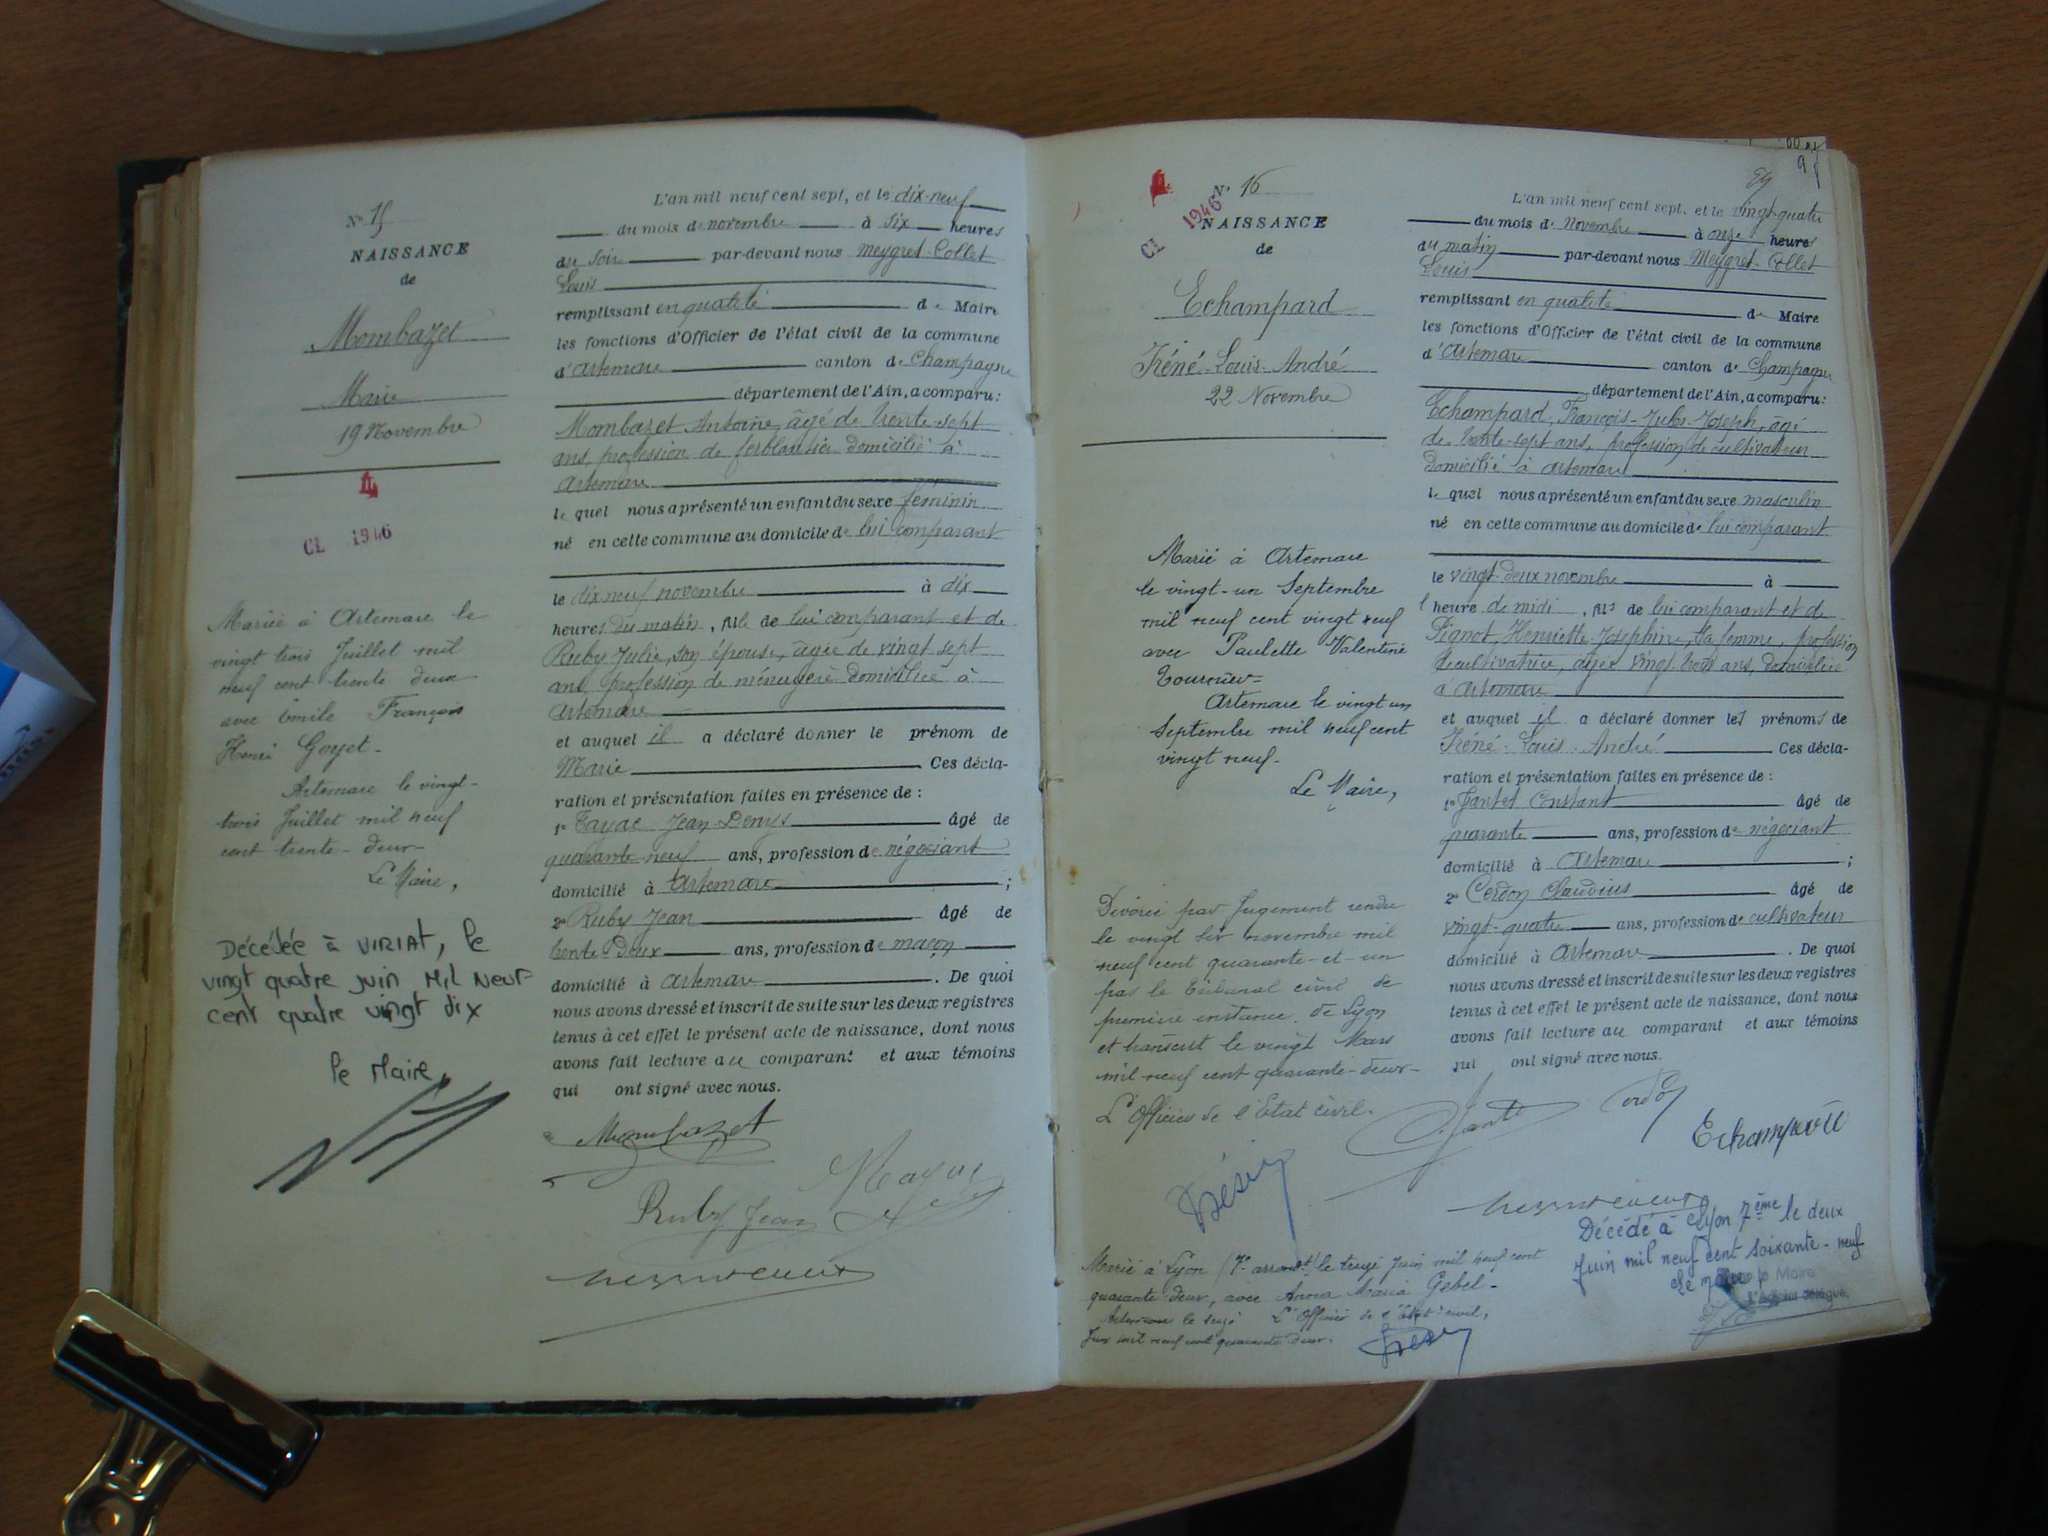 N° 15
NAISSANCE
de
Mombazet
Marie
19 Novembre
CL 1946
Mariée à Artemare le
vingt trois Juillet mil
neuf cent trente deux
avec Emile François
Henri Goyet -
Artemare le vingt-
trois Juillet mil neuf
cent trente - deux -
Le Maire,
Décédée à VIRIAT, le
vingt quatre juin Mil Neuf
cent quatre vingt dix
le Maire,
L'an mil neuf cent sept, et le dix-neuf
du mois de novembre à six heures
du soir par-devant nous Meygret-Collet
Louis
remplissant en qualité de Maire
les fonctions d'Officier de l'état civil de la commune
d'Artemare canton de Champagne
département de l'Ain, a comparu:
Mombazet Antoine, âgé de trente-sept
ans, profession de ferblantier domicilié à
Artemare
lequel nous a présenté un enfant du sexe féminin
né en cette commune au domicile de lui comparant
le dix neuf novembre à dix
heures du matin, fille de lui comparant et de
Ruby Julie, son épouse, âgée de vingt sept
ans, profession de ménagère domiciliée à
Artemare
et auquel il a déclaré donner le prénom de
Marie Ces décla-
ration et présentation faites en présence de :
1° Jean-Denys âgé de
quarante-neuf ans, profession de négociant
domicilié à Artemare ;
2° Ruby Jean âgé de
trente deux ans, profession de maçon
domicilié à Artemare . De quoi
nous avons dressé et inscrit de suite sur les deux registres
tenus à cet effet le présent acte de naissance, dont nous
avons fait lecture au comparant et aux témoins
qui ont signé avec nous.
Mombazet
Ruby Jean
N° 16
CL 1946
NAISSANCE
de
Echampard
Iréné-Louis-André
22 Novembre
Marié à Artemare
le vingt-un Septembre
mil neuf cent vingt neuf
avec Paulette Valentine
Tournier=
Artemare le vingt un
Septembre mil neuf cent
vingt neuf.
Le Maire,
Divorcé par Jugement rendu
le vingt six novembre mil
neuf cent quarante-et-un
par le Tribunal civil de
première instance de Lyon
et transcrit le vingt Mars
mil neuf cent quarante-deux-
L'Officier de l'Etat civil.
Marié à Lyon (7e arrondt) le treize Juin mil neuf cent
quarante-deux, avec Anna Maria Gebel -
Artemare le seize L'Officier de l'état civil,
Juin mil neuf cent quarante deux.
89
L'an mil neuf cent sept, et le vingt-quatre
du mois de Novembre à onze heures
du matin par-devant nous Meygret-Collet
Louis
remplissant en qualité de Maire
les fonctions d'Officier de l'état civil de la commune
d'Artemare canton de Champagne
département de l'Ain, a comparu:
Echampard, François-Jules-Joseph, âgé
de trente-sept ans, profession de cultivateur
domicilié à Artemare
lequel nous a présenté un enfant du sexe masculin
né en cette commune au domicile de lui comparant
le vingt-deux novembre à
l'heure de midi, fils de lui comparant et de
Pignot, Henriette-Josephine, sa femme, profession
de cultivatrice, âgée vingt trois ans, domiciliée
à Artemare
et auquel il a déclaré donner les prénoms de
Iréné-Louis-André Ces décla-
ration et présentation faites en présence de :
1° Jantet Constant âgé de
quarante ans, profession de négociant
domicilié à Artemare ;
2° Cerdon Claudius âgé de
vingt-quatre ans, profession de cultivateur
domicilié à Artemare . De quoi
nous avons dressé et inscrit de suite sur les deux registres
tenus à cet effet le présent acte de naissance, dont nous
avons fait lecture au comparant et aux témoins
qui ont signé avec nous.
Echampard
Décédé à Lyon 7ème le deux
Juin mil neuf cent soixante-neuf
Le Maire